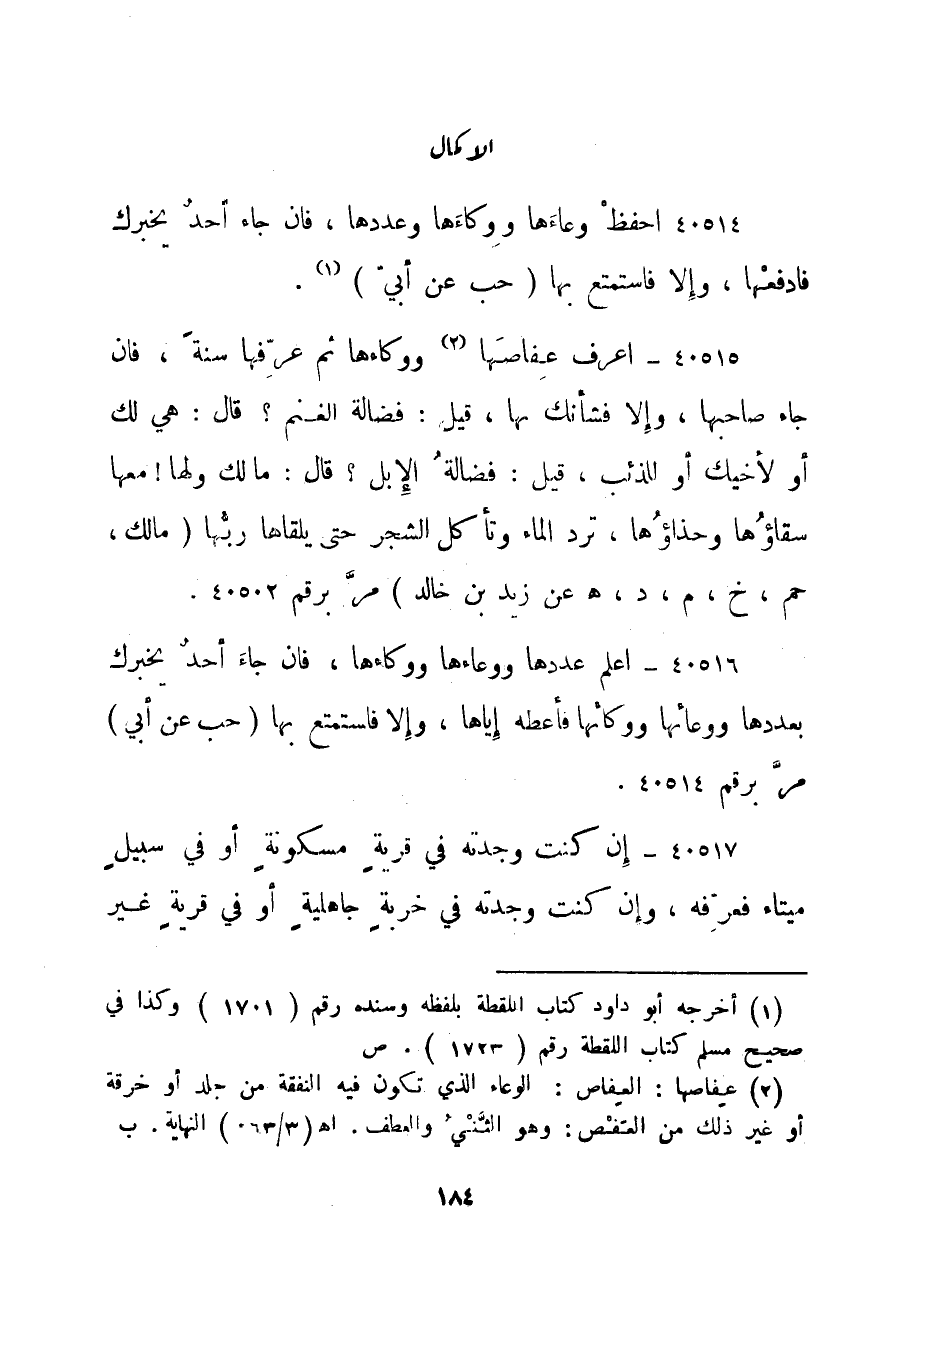 الإكمال
٤٠٥١٤ احفظْ وعاءَها ووِكاءَها وعددها ، فان جاء أحدٌ يخبرك
فادفعْها ، وإلا فاستمتع بها ( حب عن أبيّ ) (١) .
٤٠٥١٥ ـ اعرف عِفاصَها (٢) ووكاءها ثم عرِّفها سنةً ، فان
جاء صاحبها ، وإلا فشأنك بها ، قيل : فضالة الغنم ؟ قال : هي لك
أو لأخيك أو للذئب ، قيل : فضالةُ الإبل ؟ قال : مالك ولها ! معها
سقاؤُها وحذاؤُها ، ترد الماء وتأكل الشجر حتى يلقاها ربُّها ( مالك ،
حم ، خ ، م ، د ، ه عن زيد بن خالد ) مرَّ برقم ٤٠٥٠٢ .
٤٠٥١٦ ـ اعلم عددها ووعاءها ووكاءها ، فان جاءَ أحدٌ يخبرك
بعددها ووعائها ووكائها فأعطه إياها ، وإلا فاستمتع بها ( حب عن أبي )
مرَّ برقم ٤٠٥١٤ .
٤٠٥١٧ ـ إن كنت وجدته في قريةٍ مسكونةٍ أو في سبيلٍ
ميتاء فعرِّفه ، وإن كنت وجدته في خربةٍ جاهليةٍ أو في قريةٍ غير
(١) أخرجه أبو داود كتاب اللقطة بلفظه وسنده رقم ( ١٧٠١ ) وكذا في
صحيح مسلم كتاب اللقطة رقم ( ١٧٢٣ ) . ص
(٢) عِفاصها : العِفاص : الوعاء الذي تكون فيه النفقة من جلد أو خرقة
أو غير ذلك من العَفْص : وهو الثَّنْيُ والعطف . اه (٠٦٣/٣ ) النهاية . ب
١٨٤